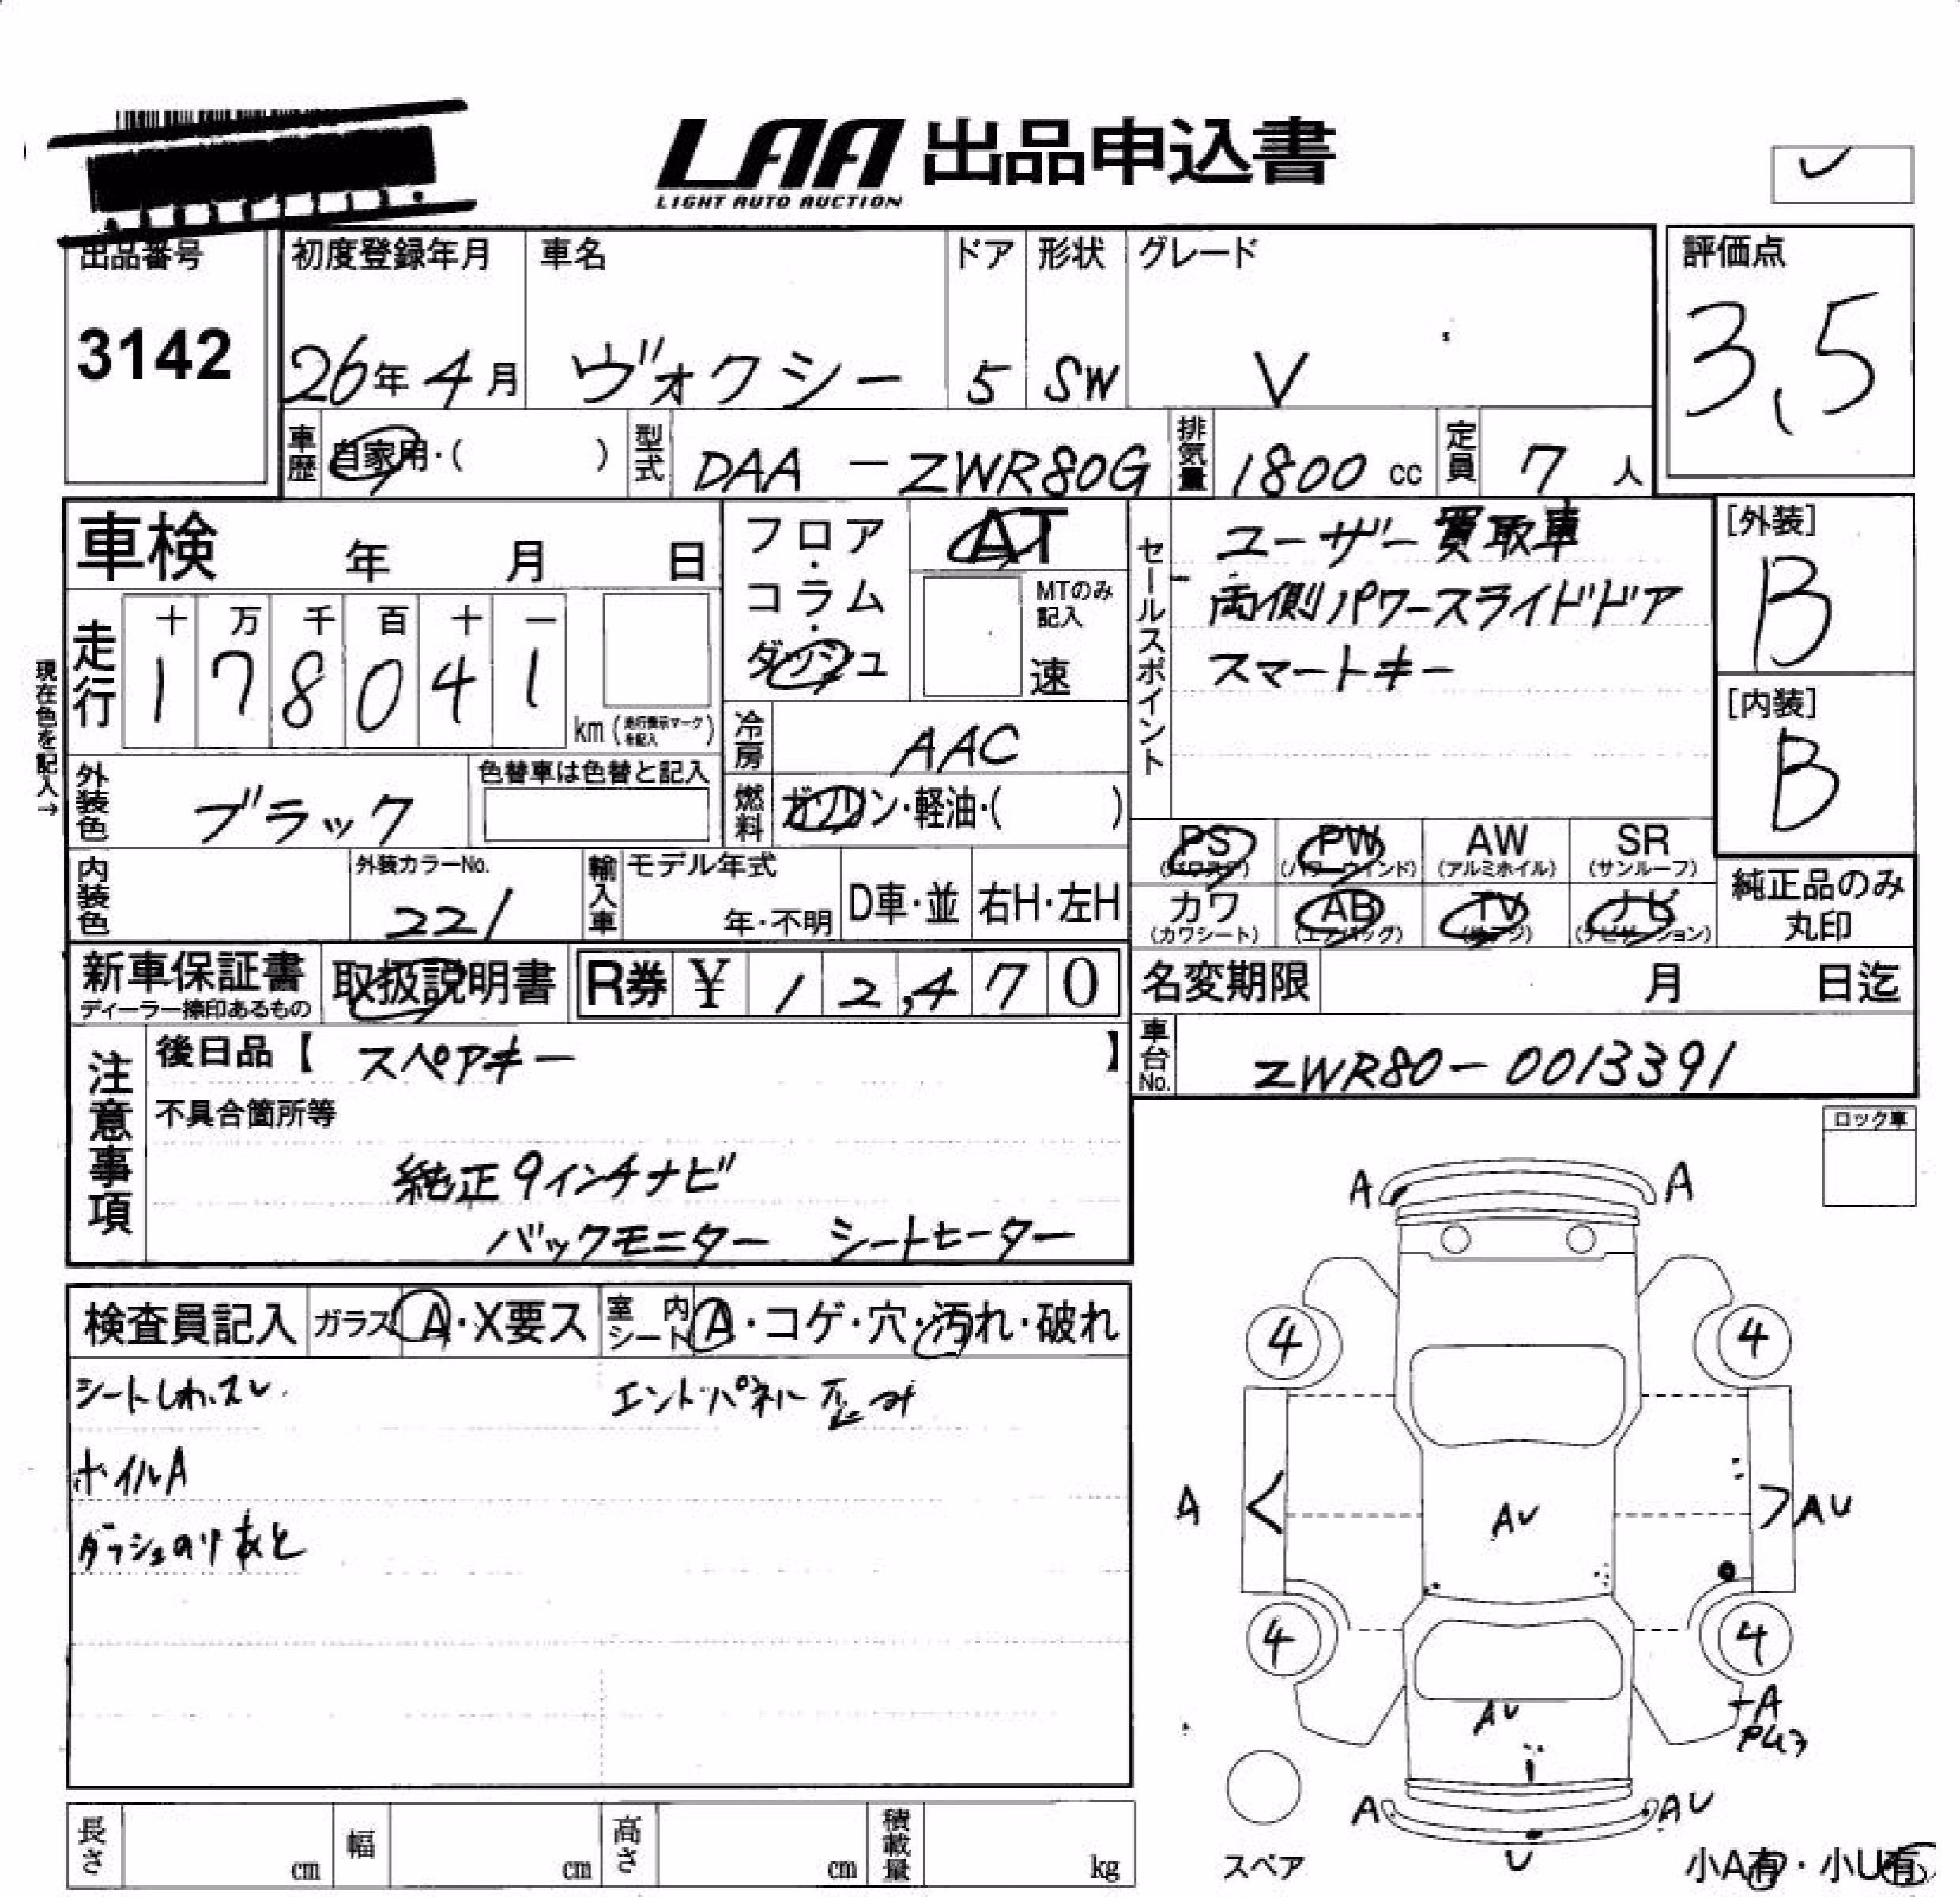 LAA 出品申込書
LIGHT AUTO AUCTION
出品番号
3142
初度登録年月 車名 ドア 形状 グレード
26年 4月 ヴォクシー 5 SW V
評価点
3.5
車歴 自家用・( ) 型式 DAA - ZWR80G 排気量 1800 cc 定員 7 人
車検 年 月 日
フロア・コラム・ダッシュ
AT
MTのみ記入
速
セールスポイント
ユーザー買取車
両側パワースライドドア
スマートキー
[外装]
B
[内装]
B
現在色を記入→
走行 十 万 千 百 十 一
1 7 8 0 4 1
km (走行表示マークを記入)
冷房 AAC
外装色 ブラック 色替車は色替と記入
燃料 ガソリン・軽油・( )
PS (パワステ) PW (パワーウインド) AW (アルミホイル) SR (サンルーフ)
カワ (カワシート) AB (エアバッグ) TV (テレビ) ナビ (ナビゲーション)
純正品のみ
丸印
内装色 外装カラーNo. 221
輸入車 モデル年式 年・不明 D車・並 右H・左H
新車保証書
ディーラー捺印あるもの
取扱説明書 R券 ¥ 12,470
名変期限 月 日迄
車台No. ZWR80-0013391
注意事項
後日品【 スペアキー 】
不具合箇所等
純正9インチナビ
バックモニター シートヒーター
ロック車
検査員記入 ガラス A・X要ス 室内シート A・コゲ・穴・汚れ・破れ
シートしわ.スレ. エンドパネル歪み
ホイルA
ダッシュのりあと
A A
4 4
A AU
AU
4 4
AU
A
A AU
U
スペア
小A有・小U有
長さ cm 幅 cm 高さ cm 積載量 kg